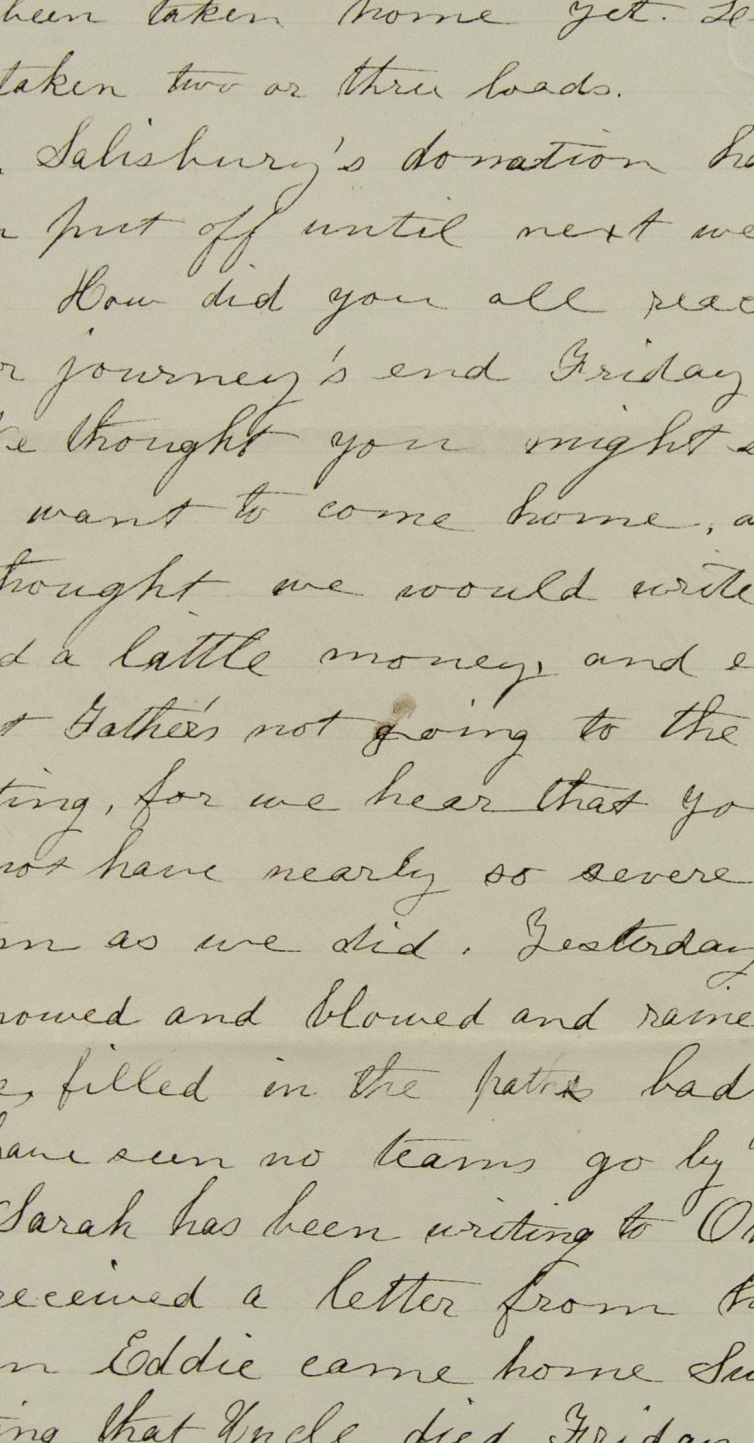 been taken home yet. Le
taken two or three loads.
. Salisbury's donation ha
n put off until next we
How did you all reac
r journey's end Friday
e thought you might s
want to come home, a
thought we would write
d a little money, and e
t Father's not going to the
ting, for we hear that yo
not have nearly so severe
m as we did. Yesterday
nowed and blowed and raine
e, filled in the paths bad
have seen no teams go by
Sarah has been writing to O
received a letter from h
n Eddie came home Su
ing that Uncle died Friday